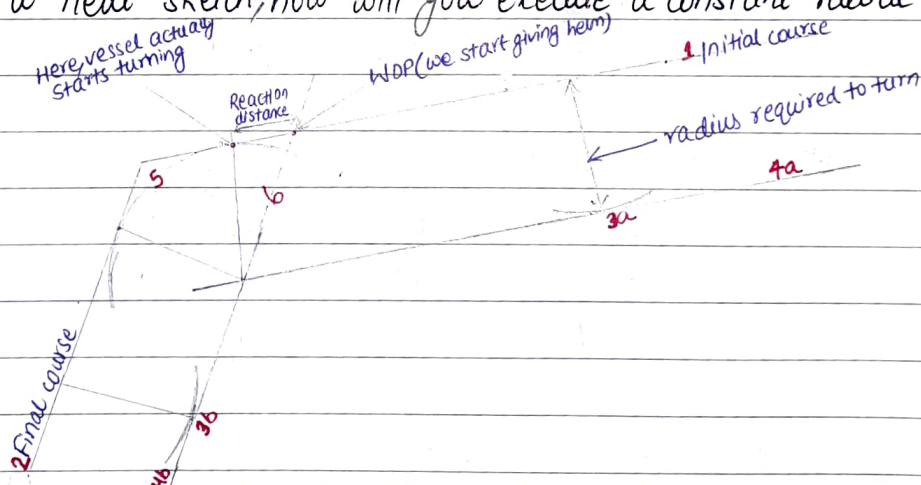 a neat sketch, how will you execute a constant radius
Here, vessel actually
starts turning
Reaction
distance
WOP (we start giving helm)
1 Initial course
radius required to turn
4a
3a
5
6
2 Final course
3b
4b